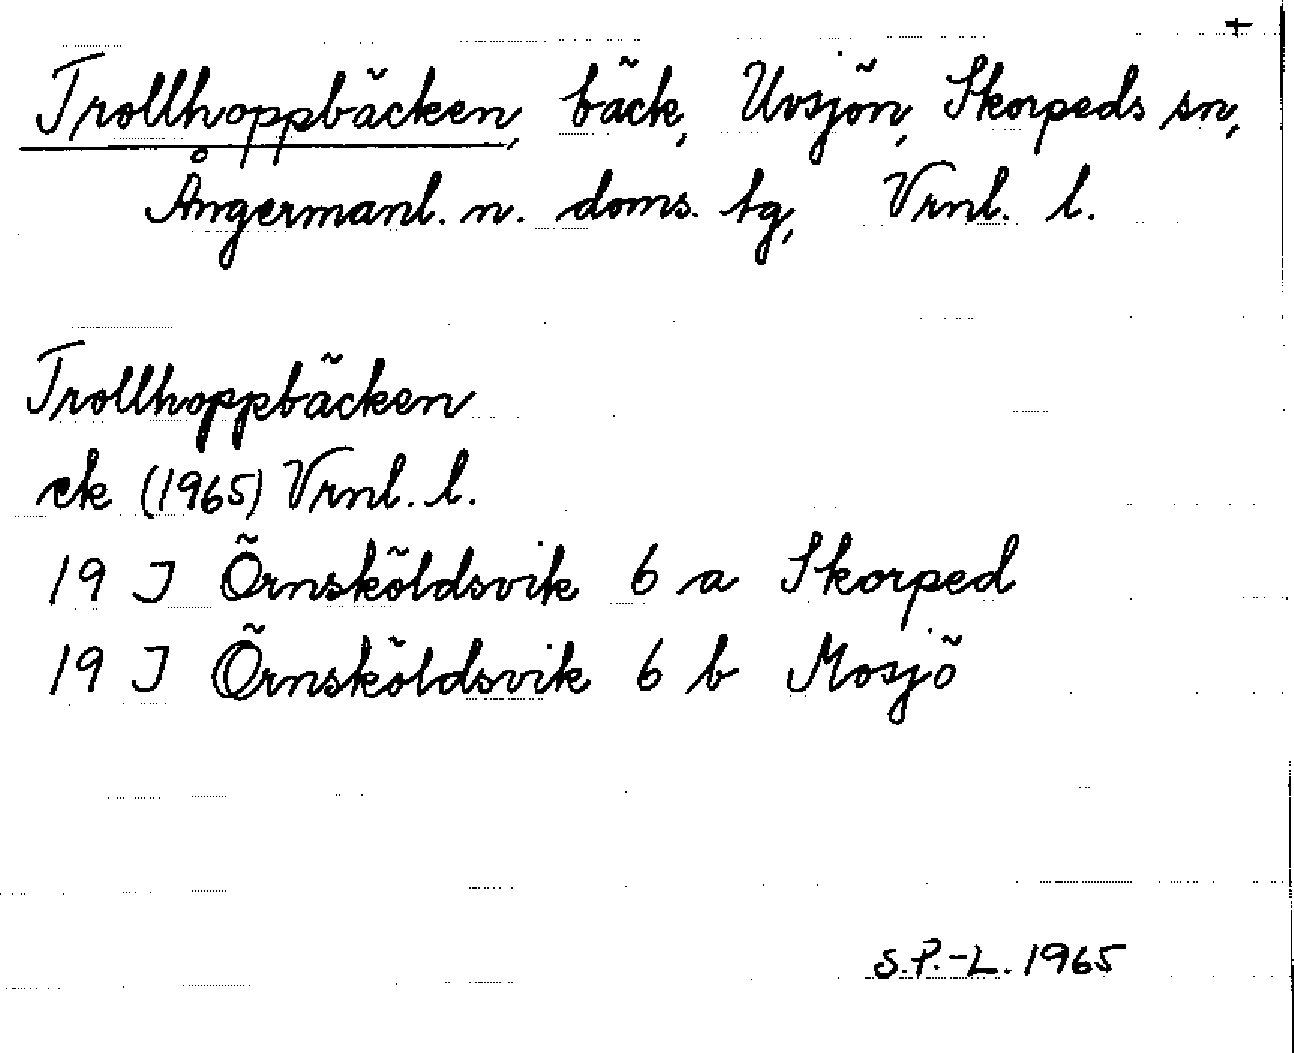 +
Trollhoppbäcken, bäck, Uvsjön, Skorpeds sn,
Ångermanl. n. doms. tg, Vrnl. l.
Trollhoppbäcken
ek (1965) Vrnl. l.
19 J Örnsköldsvik 6 a Skorped
19 J Örnsköldsvik 6 b Mosjö
S.P.-L. 1965